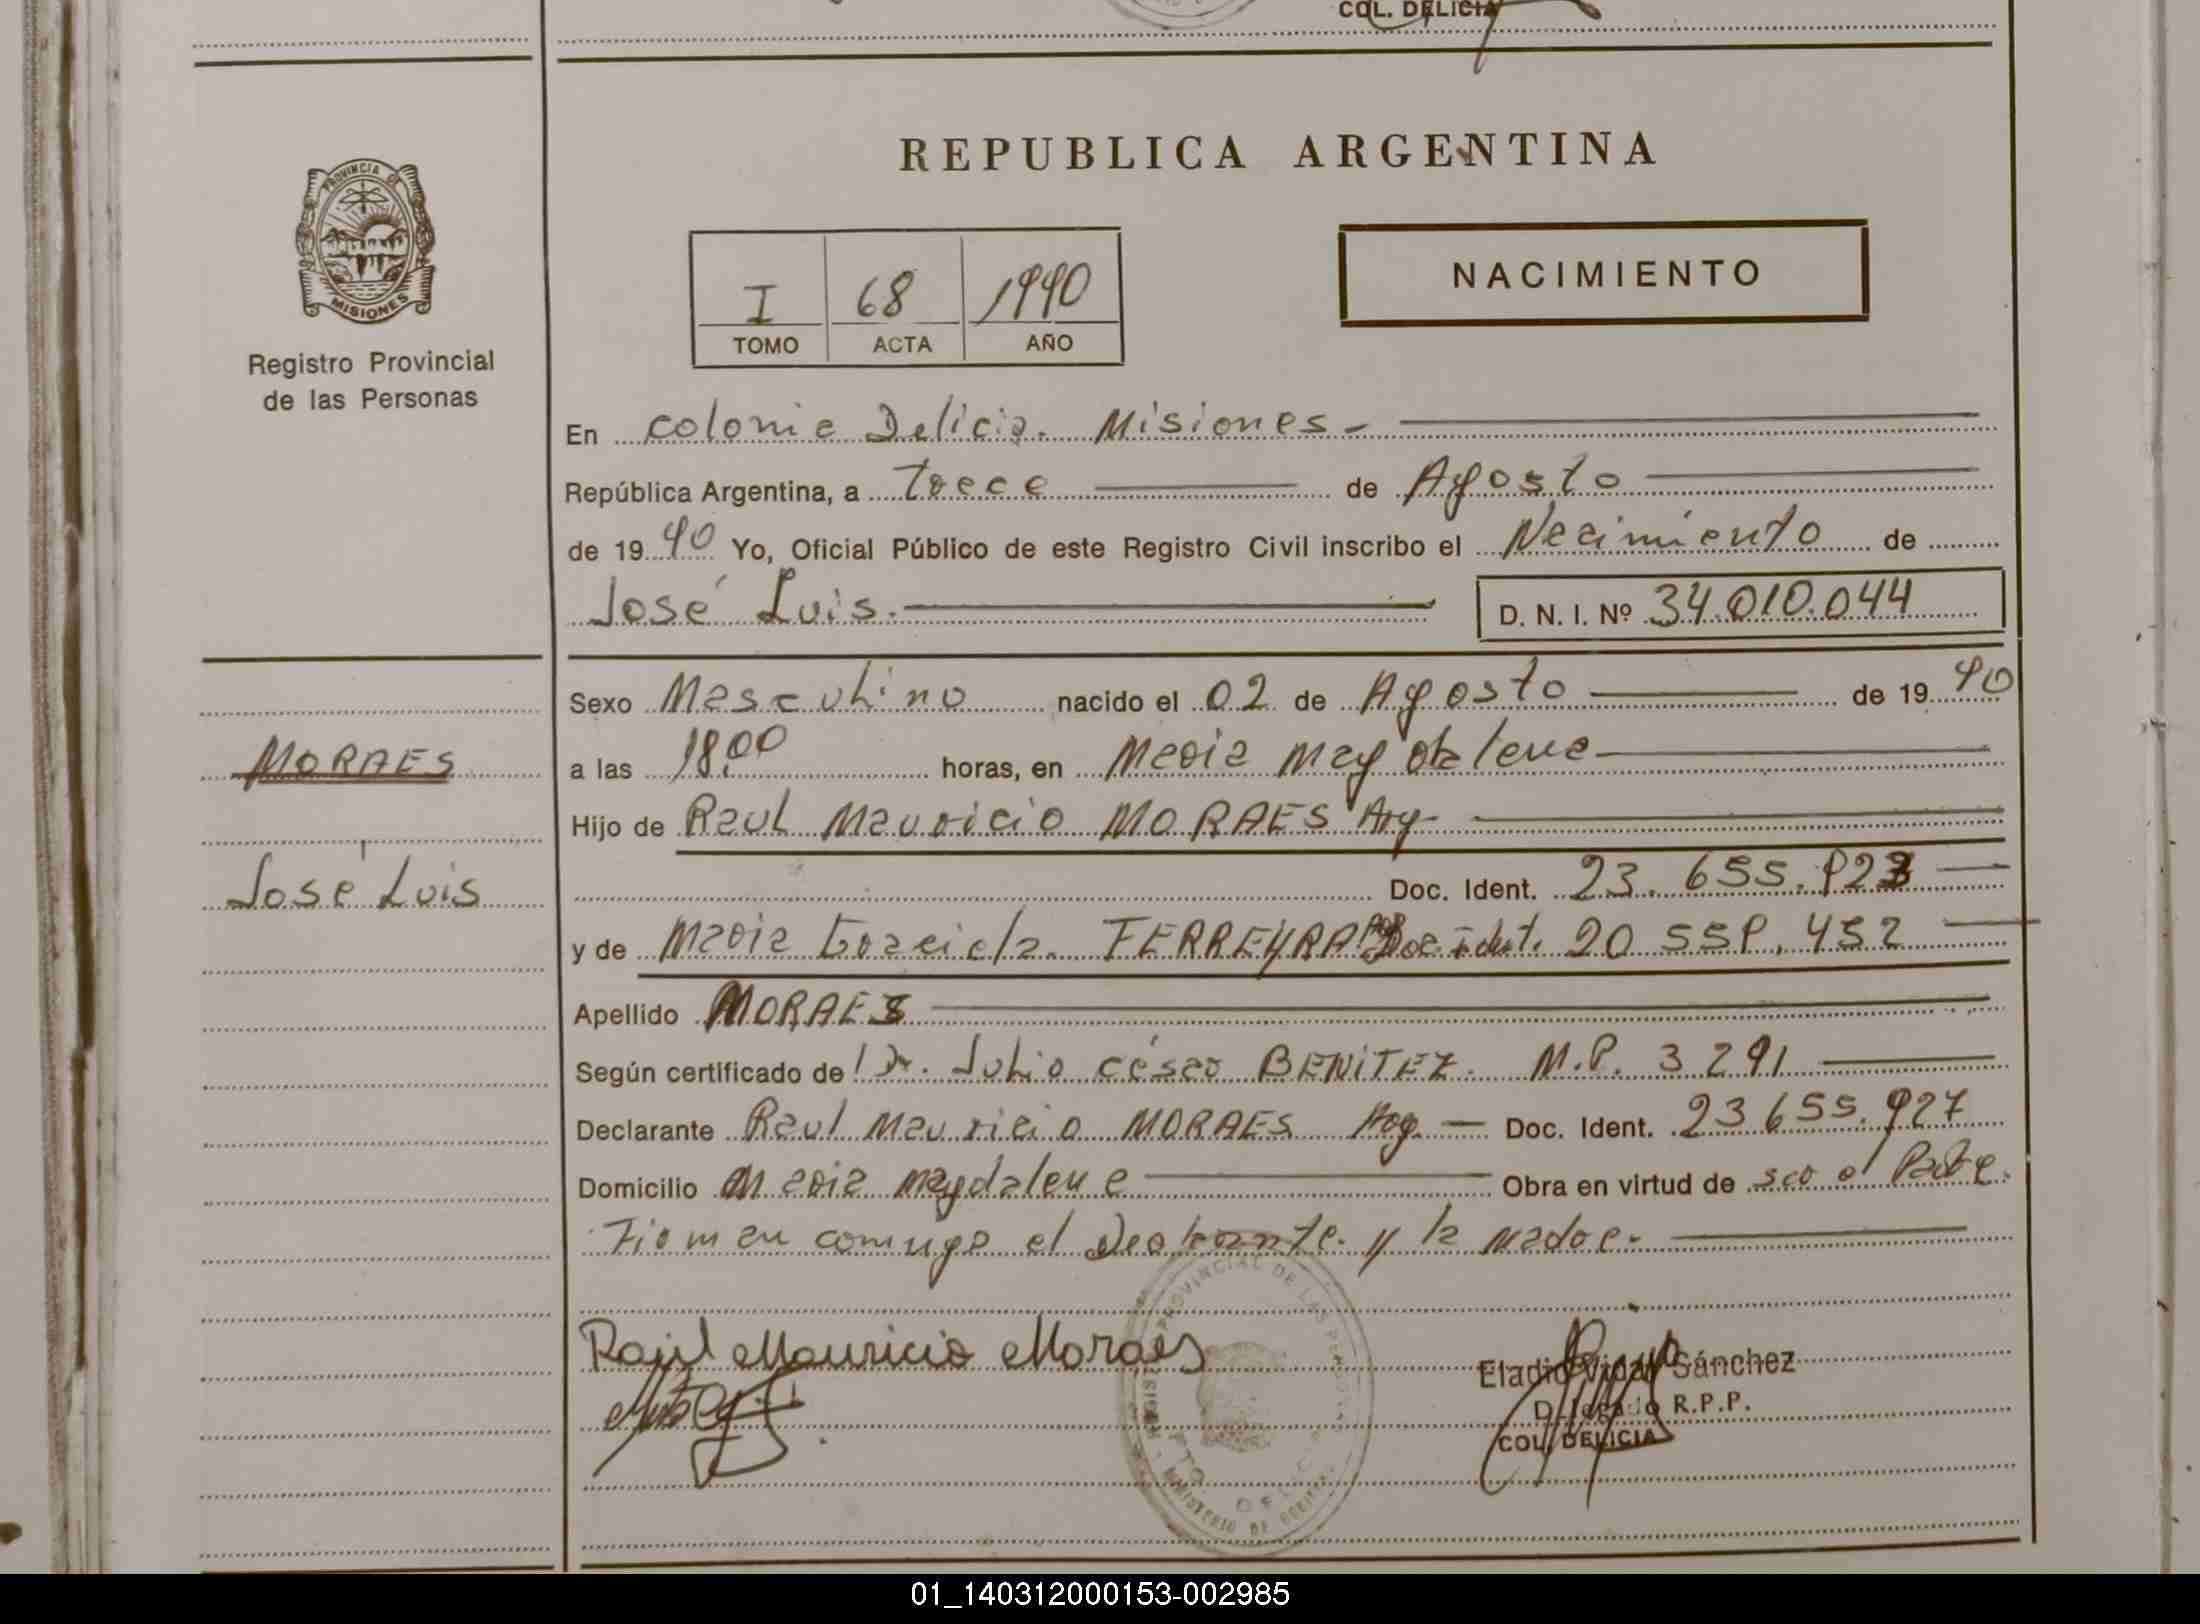 COL. DELICIA
PROVINCIA DE
MISIONES
Registro Provincial
de las Personas
REPUBLICA ARGENTINA
I 68 1990
TOMO ACTA AÑO
NACIMIENTO
En Colonia Delicia. Misiones-
República Argentina, a Trece de Agosto
de 19 90 Yo, Oficial Público de este Registro Civil inscribo el Nacimiento de
José Luis.
D. N. I. Nº 34.010.044
MORAES
José Luis
Sexo Masculino nacido el 02 de Agosto de 19 90
a las 18,00 horas, en Maria Magdalena
Hijo de Raul Mauricio MORAES Arg-
Doc. Ident. 23.655.923
y de Maria Graciela. FERREYRA Arg Doc. ident. 20 559.452
Apellido MORAES
Según certificado de Dr. Julio César BENITEZ. M.P. 3291
Declarante Raul Mauricio MORAES Arg. Doc. Ident. 23655.927
Domicilio Maria Magdalena Obra en virtud de ser el Padre.
Firman conmigo el Declarante. y la madre.
Raúl Mauricio Moraes
PROVINCIAL DE LAS
MINISTERIO DE
Eladio Vidal Sánchez
Delegado R.P.P.
COL. DELICIA
01_140312000153-002985